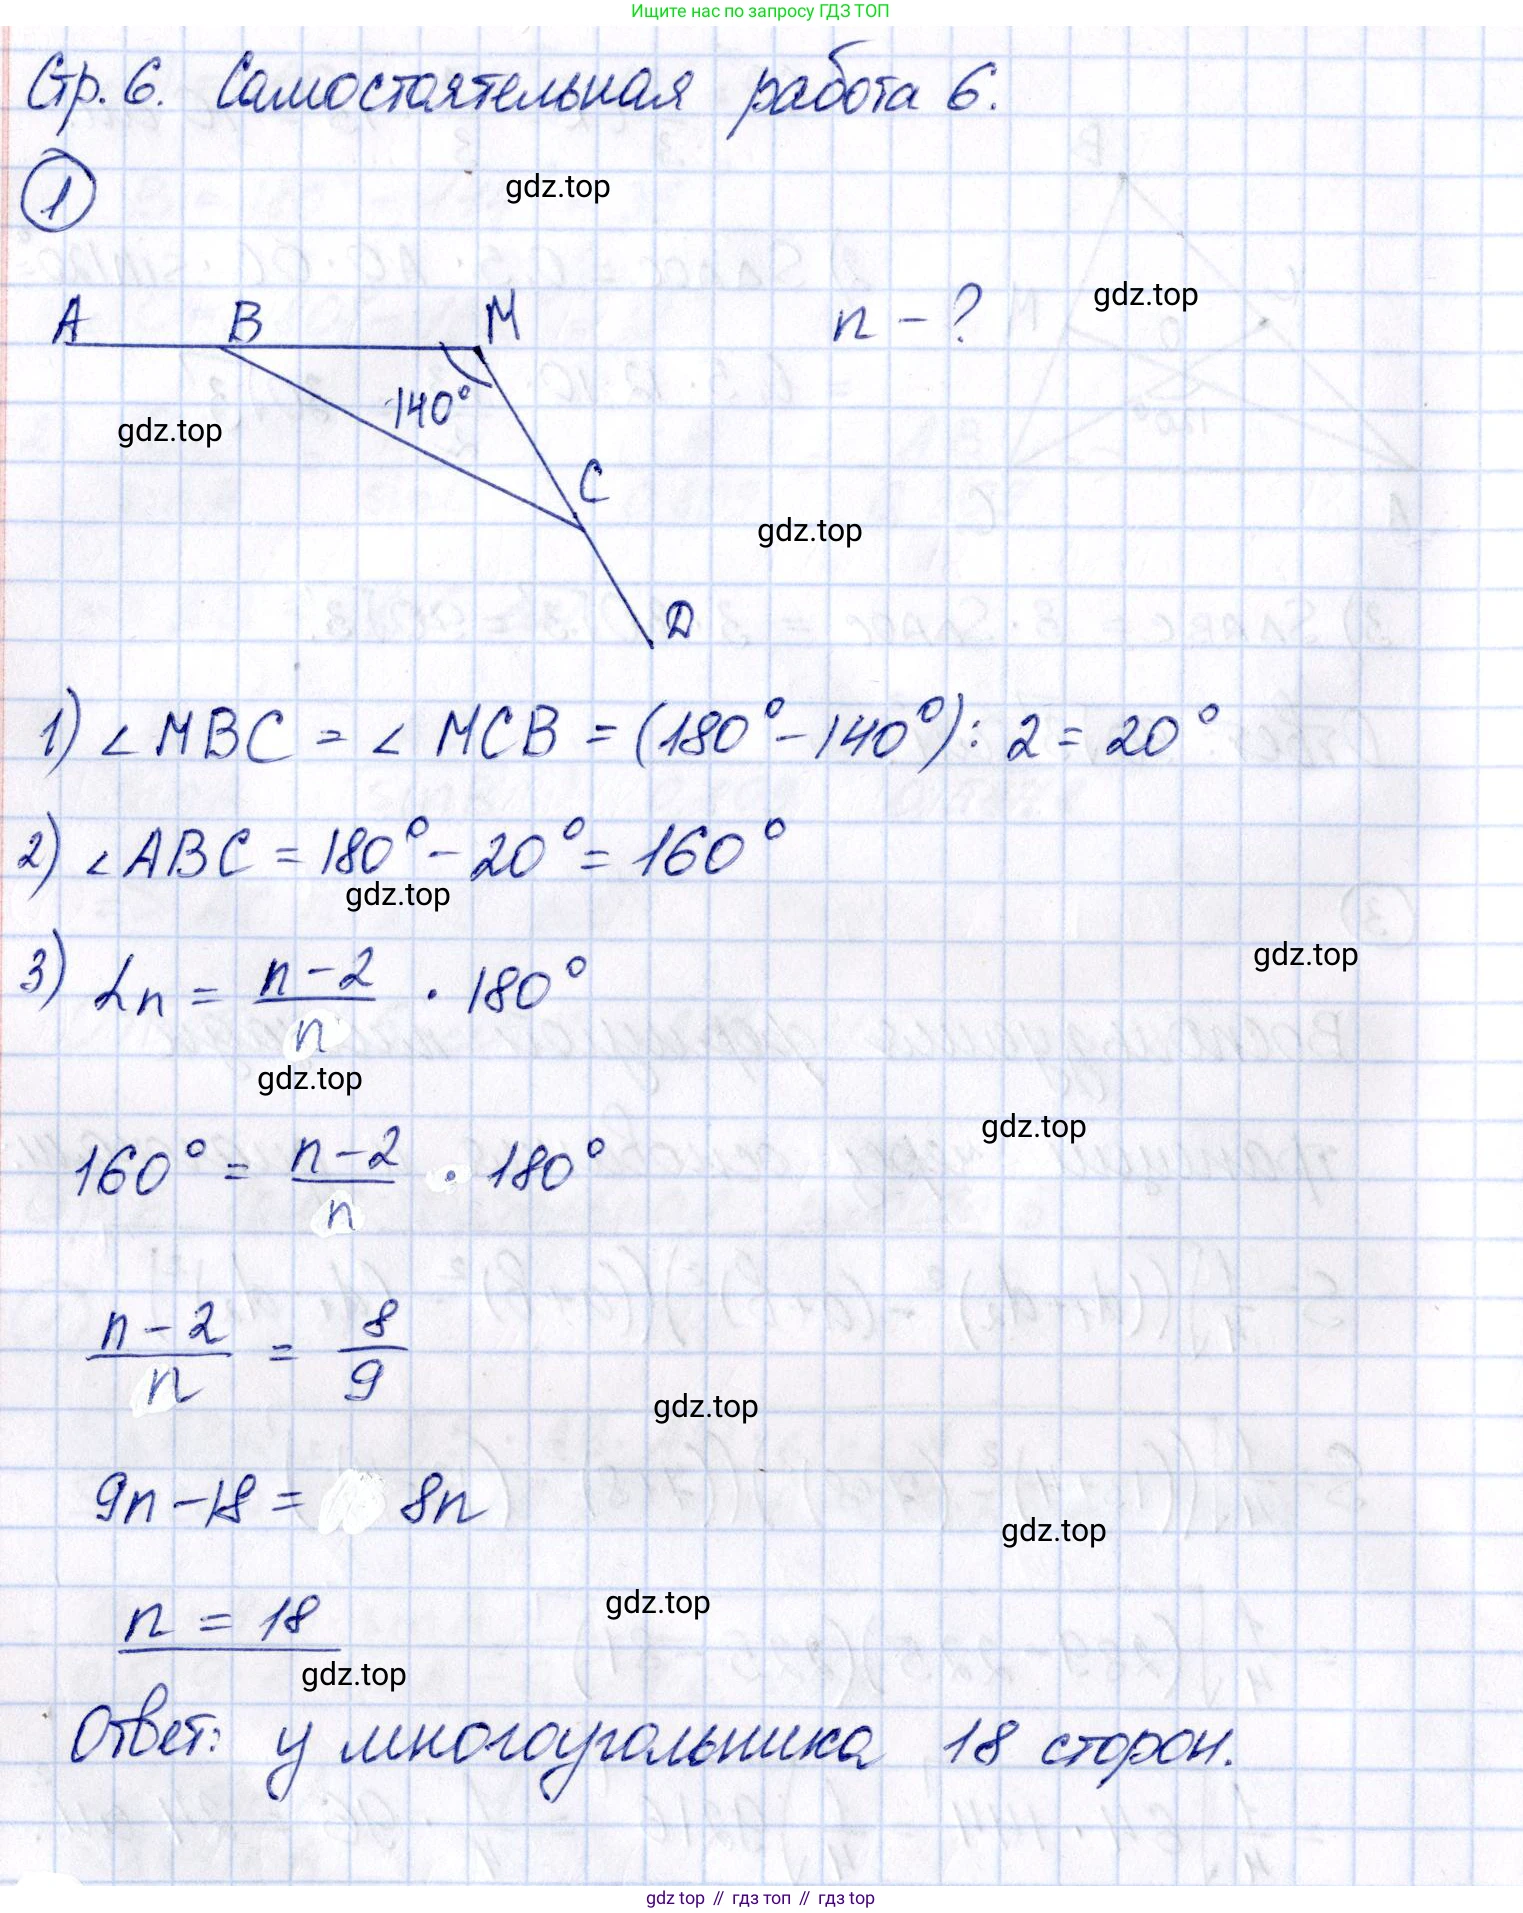 Ищите нас по запросу ГДЗ ТОП
Стр. 6. Самостоятельная работа 6.
1
gdz.top
A B M n - ? gdz.top
140°
gdz.top
C
gdz.top
D
1) ∠MBC = ∠MCB = (180° - 140°) : 2 = 20°
2) ∠ABC = 180° - 20° = 160°
gdz.top
gdz.top
3) αn = (n-2)/n · 180°
gdz.top
gdz.top
160° = (n-2)/n · 180°
(n-2)/n = 8/9
gdz.top
9n - 18 = 8n
gdz.top
n = 18
gdz.top
gdz.top
Ответ: у многоугольника 18 сторон.
gdz top // гдз топ // гдз top